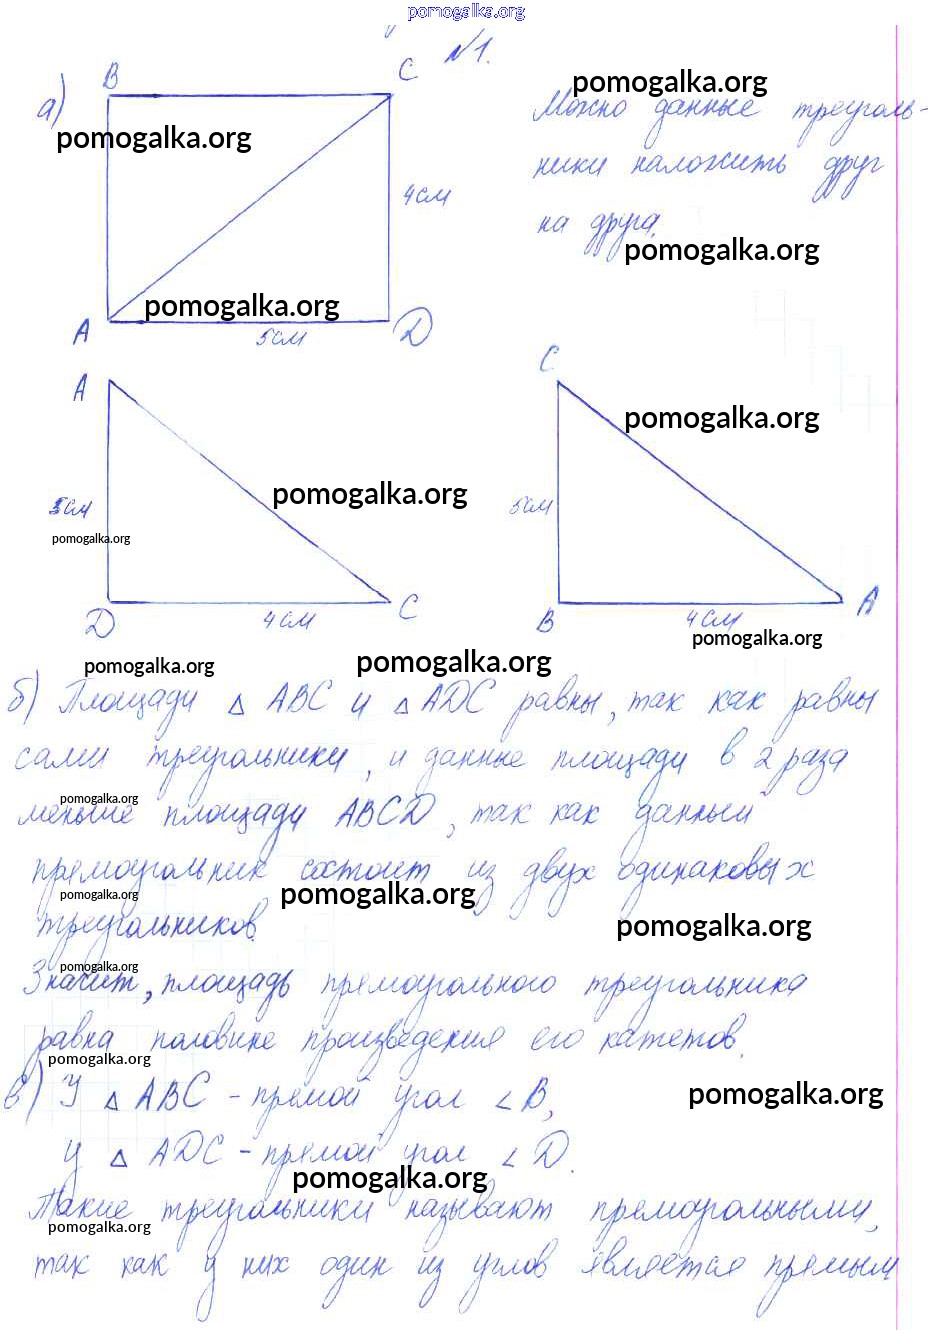 pomogalka.org
№1.
а)
B
C
pomogalka.org
Можно данные треуголь-
pomogalka.org
ники наложить друг
4см
на друга.
pomogalka.org
pomogalka.org
A
5см
D
A
C
pomogalka.org
5см
pomogalka.org
5см
pomogalka.org
D
4см
C
B
4см
A
pomogalka.org
pomogalka.org
pomogalka.org
б) Площади △ ABC и △ ADC равны, так как равны
сами треугольники, и данные площади в 2 раза
pomogalka.org
меньше площади ABCD, так как данный
прямоугольник состоит из двух одинаковых
pomogalka.org
pomogalka.org
треугольников.
pomogalka.org
pomogalka.org
Значит, площадь прямоугольного треугольника
равна половине произведения его катетов.
pomogalka.org
в) У △ ABC - прямой угол ∠B,
pomogalka.org
у △ ADC - прямой угол ∠D.
pomogalka.org
Такие треугольники называют прямоугольными,
pomogalka.org
так как у них один из углов является прямым